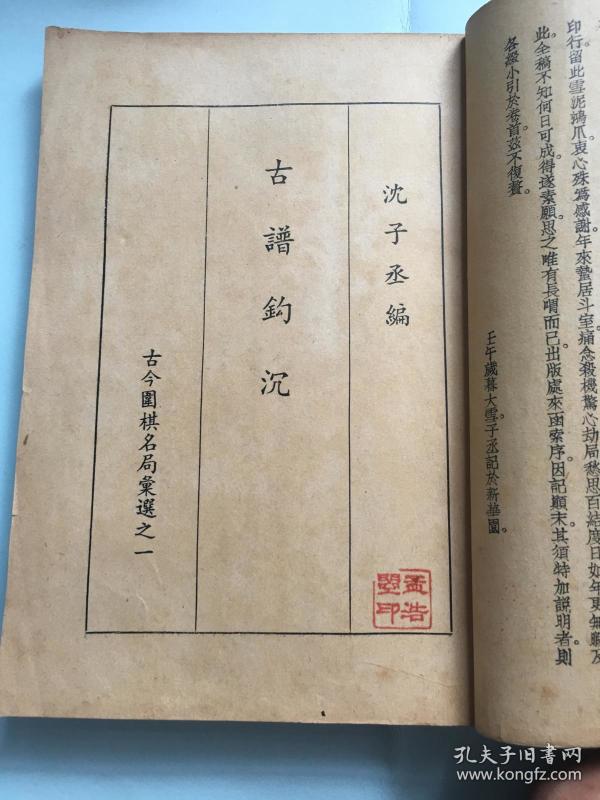 印行留此雪泥鴻爪衷心殊為感謝。年來蟄居斗室痛念殺機驚心劫局愁思百結度日如年更無暇及
此全稿不知何日可成得遂素願思之唯有長喟而已出版處來函索序因記顛末其須特加說明者則
各綴小引於卷首茲不復贅。
壬午歲暮大雪子丞記於新華園。
沈子丞編
古譜鈎沉
古今圍棋名局彙選之一
孟浩
印
孔夫子旧書网
www.kongfz.com